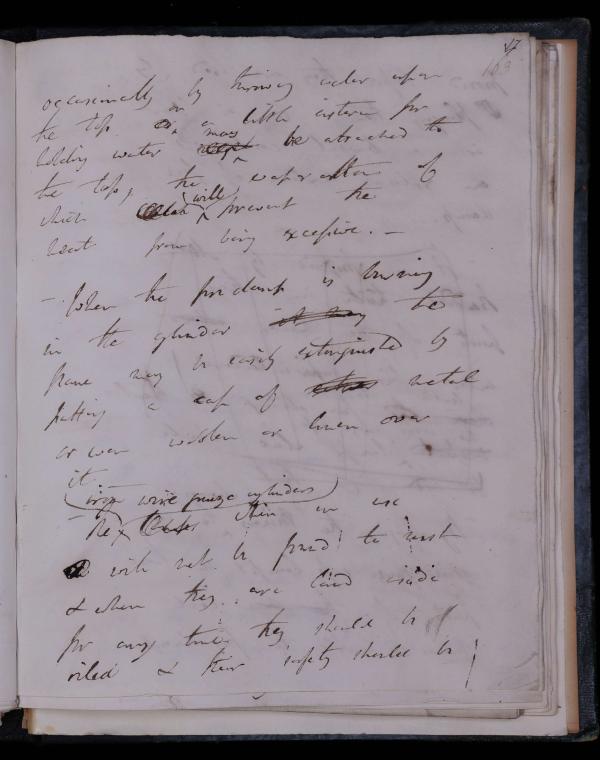 17
103
occasionally by throwing water upon
the top. or a little cistern for
holding water may be attached to
the top, the evaporation of
which will prevent the
heat from being excessive. —
– When the fire damp is burning
in the cylinder it may the
flame may be easily extinguished by
putting a cap of metal
or even woollen or linen over
it.
iron wire gauze cylinders
– The when in use
will not be found to rust
& when they are laid aside
for any time they should be
oiled & their safety should be